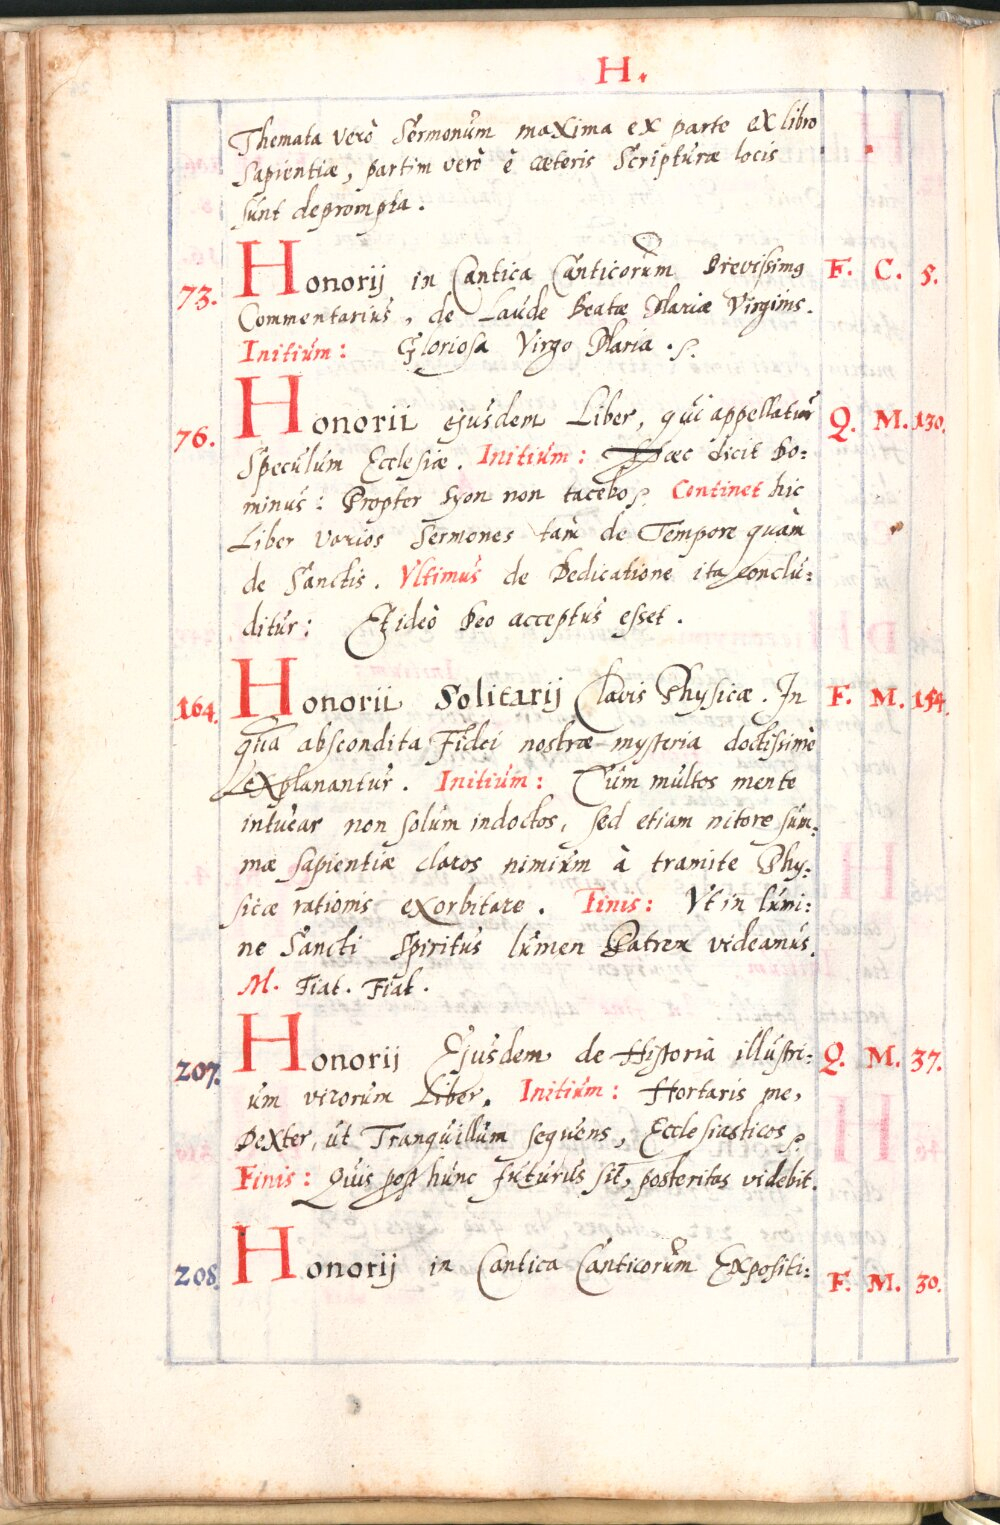 H.
Themata verò Sermonum maxima ex parte ex libro
Sapientiæ, partim verò è cæteris Scripturæ locis
sunt deprompta.
73. Honorij in Cantica Canticorum Brevissimg F. C. 5.
Commentarius, de Laude Beatæ Mariæ Virginis.
Initium: Gloriosa Virgo Maria.
76. Honorii ejusdem Liber, qui appellatur Q. M. 130.
Speculum Ecclesiæ. Initium: Hæc dicit Do:
minus: Propter Syon non tacebo. Continet hic
Liber varios Sermones tàm de Tempore quàm
de Sanctis. Vltimus de Dedicatione ita conclu:
ditur: Et ideò Deo acceptus esset.
164. Honorii Solitarij Clavis Physicæ. In F. M. 154.
qua abscondita Fidei nostræ mysteria doctissimè
explanantur. Initium: Cum multos mente
intuear non solum indoctos, sed etiam nitore sum:
mæ sapientiæ claros nimium à tramite Phy:
sicæ rationis exorbitare. Finis: Vt in lumi:
ne Sancti Spiritus lumen Patrem videamus.
M. Fiat. Fiat.
207. Honorij Ejusdem de Historia illustri: Q. M. 37.
um virorum Liber. Initium: Hortaris me,
Dexter, ut Tranquillum sequens, Ecclesiasticos
Finis: Quis post hunc futurus sit, posteritas videbit.
208. Honorij in Cantica Canticorum Expositi: F. M. 30.